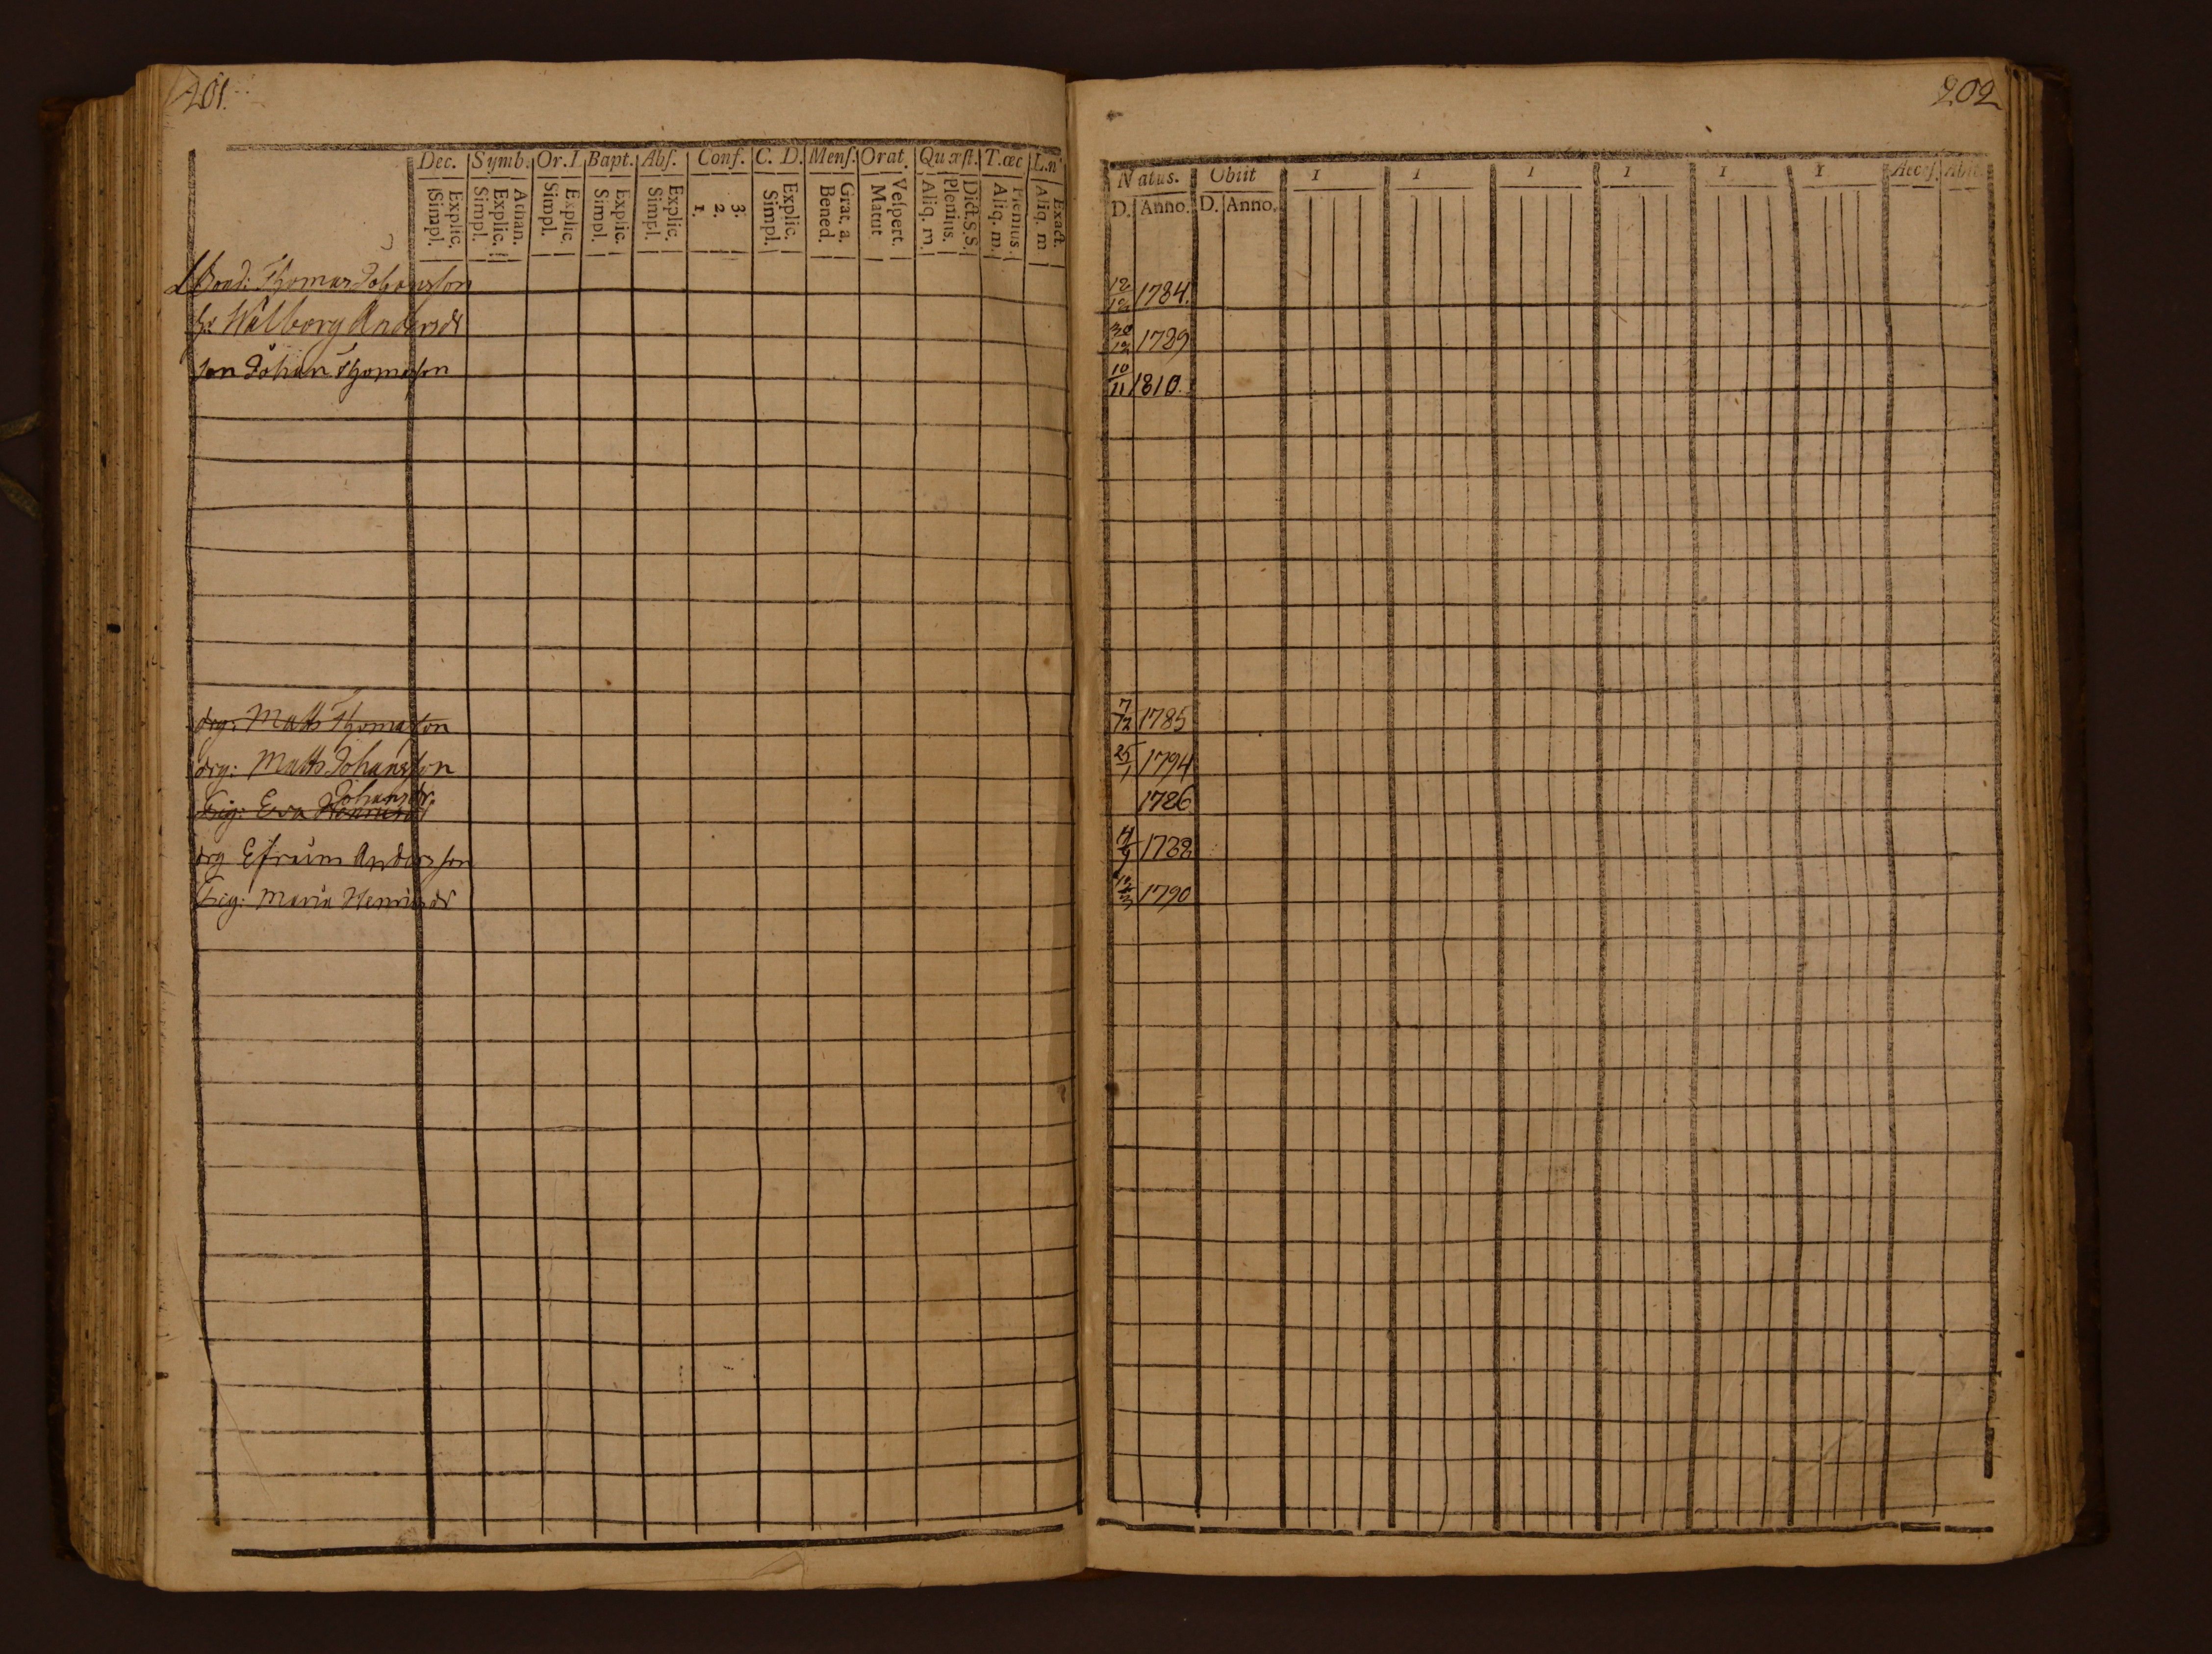 201.
Dec. Symb. Or. I. Bapt. Abſ. Conf. C. D. Menſ. Orat. Quæſt. T. œc L.n
Explic. Simpl. Athan. Explic. Simpl. Explic. Simpl. Explic. Simpl. Explic. Simpl. 3. 2. 1. Explic. Simpl. Grat. a. Bened. Veſpert. Matut Dict. S. S. Plenius. Aliq. m. Plenius. Aliq. m. Exact. Aliq. m
Bond: Thomas Johansson
h: Walborg Andersdr
son Johan Thomasson
drg: Matts Thomasson
drg: Matts Johansson
Johansdr
pig: Eva
drg Efraim Andersson
pig: Maria Henricsdr
202
Natus. Obiit I I I I I I Acceſ. Abit.
D. Anno. D. Anno.
12/12 1784.
30/12 1789
10/11 1810.
7/12 1785
25/1 1794
1786
1788
12/3 1790